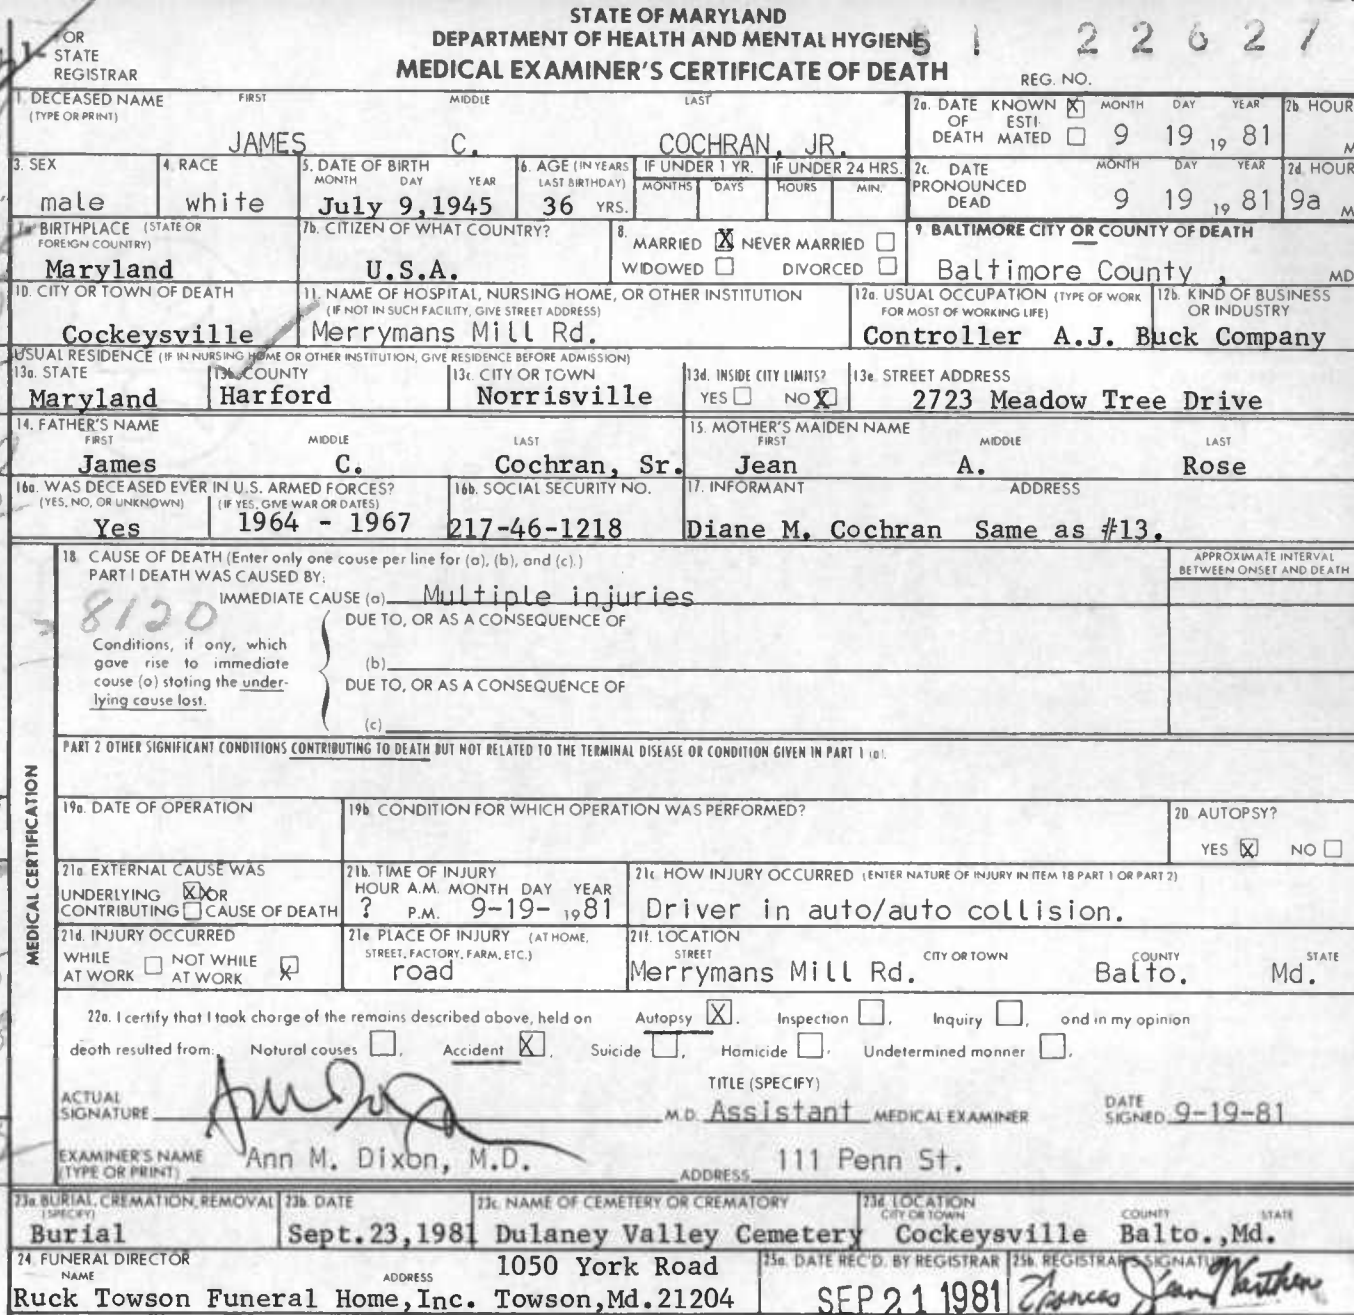 STATE OF MARYLAND
DEPARTMENT OF HEALTH AND MENTAL HYGIENE
81 22627
FOR STATE REGISTRAR
MEDICAL EXAMINER'S CERTIFICATE OF DEATH
REG. NO.
1. DECEASED NAME (TYPE OR PRINT) FIRST MIDDLE LAST
JAMES C. COCHRAN, JR.
2a. DATE OF DEATH KNOWN X ESTIMATED MONTH DAY YEAR 9 19 19 81
2b. HOUR M
3. SEX male
4. RACE white
5. DATE OF BIRTH MONTH DAY YEAR July 9,1945
6. AGE (IN YEARS LAST BIRTHDAY) 36 YRS.
IF UNDER 1 YR. MONTHS DAYS
IF UNDER 24 HRS. HOURS MIN.
2c. DATE PRONOUNCED DEAD MONTH DAY YEAR 9 19 19 81
2d. HOUR 9a M
7a. BIRTHPLACE (STATE OR FOREIGN COUNTRY) Maryland
7b. CITIZEN OF WHAT COUNTRY? U.S.A.
8. MARRIED X NEVER MARRIED
WIDOWED DIVORCED
9. BALTIMORE CITY OR COUNTY OF DEATH
Baltimore County , MD
10. CITY OR TOWN OF DEATH Cockeysville
11. NAME OF HOSPITAL, NURSING HOME, OR OTHER INSTITUTION (IF NOT IN SUCH FACILITY, GIVE STREET ADDRESS)
Merrymans Mill Rd.
12a. USUAL OCCUPATION (TYPE OF WORK FOR MOST OF WORKING LIFE) Controller
12b. KIND OF BUSINESS OR INDUSTRY A.J. Buck Company
USUAL RESIDENCE (IF IN NURSING HOME OR OTHER INSTITUTION, GIVE RESIDENCE BEFORE ADMISSION)
13a. STATE Maryland
13b. COUNTY Harford
13c. CITY OR TOWN Norrisville
13d. INSIDE CITY LIMITS? YES NO X
13e. STREET ADDRESS 2723 Meadow Tree Drive
14. FATHER'S NAME FIRST MIDDLE LAST
James C. Cochran, Sr.
15. MOTHER'S MAIDEN NAME FIRST MIDDLE LAST
Jean A. Rose
16a. WAS DECEASED EVER IN U.S. ARMED FORCES? (YES, NO, OR UNKNOWN) Yes (IF YES, GIVE WAR OR DATES) 1964 - 1967
16b. SOCIAL SECURITY NO. 217-46-1218
17. INFORMANT ADDRESS
Diane M. Cochran Same as #13.
MEDICAL CERTIFICATION
18. CAUSE OF DEATH (Enter only one cause per line for (a), (b), and (c).)
APPROXIMATE INTERVAL BETWEEN ONSET AND DEATH
PART I DEATH WAS CAUSED BY:
IMMEDIATE CAUSE (a) Multiple injuries
8120
DUE TO, OR AS A CONSEQUENCE OF
Conditions, if any, which gave rise to immediate cause (a) stating the underlying cause last.
(b)
DUE TO, OR AS A CONSEQUENCE OF
(c)
PART 2 OTHER SIGNIFICANT CONDITIONS CONTRIBUTING TO DEATH BUT NOT RELATED TO THE TERMINAL DISEASE OR CONDITION GIVEN IN PART 1 (a).
19a. DATE OF OPERATION
19b. CONDITION FOR WHICH OPERATION WAS PERFORMED?
20. AUTOPSY? YES X NO
21a. EXTERNAL CAUSE WAS
UNDERLYING X OR
CONTRIBUTING CAUSE OF DEATH
21b. TIME OF INJURY
HOUR A.M. MONTH DAY YEAR
? P.M. 9-19- 1981
21c. HOW INJURY OCCURRED (ENTER NATURE OF INJURY IN ITEM 18 PART 1 OR PART 2)
Driver in auto/auto collision.
21d. INJURY OCCURRED
WHILE AT WORK NOT WHILE AT WORK X
21e. PLACE OF INJURY (AT HOME, STREET, FACTORY, FARM, ETC.)
road
21f. LOCATION STREET CITY OR TOWN COUNTY STATE
Merrymans Mill Rd. Balto. Md.
22a. I certify that I took charge of the remains described above, held on Autopsy X. Inspection , Inquiry , and in my opinion
death resulted from: Natural causes , Accident X, Suicide , Homicide , Undetermined manner .
ACTUAL SIGNATURE M.D.
TITLE (SPECIFY) Assistant MEDICAL EXAMINER
DATE SIGNED 9-19-81
EXAMINER'S NAME (TYPE OR PRINT) Ann M. Dixon, M.D.
ADDRESS 111 Penn St.
23a. BURIAL, CREMATION, REMOVAL (SPECIFY) Burial
23b. DATE Sept.23,1981
23c. NAME OF CEMETERY OR CREMATORY Dulaney Valley Cemetery
23d. LOCATION CITY OR TOWN COUNTY STATE
Cockeysville Balto.,Md.
24. FUNERAL DIRECTOR NAME ADDRESS
1050 York Road
Ruck Towson Funeral Home,Inc. Towson,Md.21204
25a. DATE REC'D. BY REGISTRAR SEP 21 1981
25b. REGISTRAR'S SIGNATURE
Frances Jean Warthen